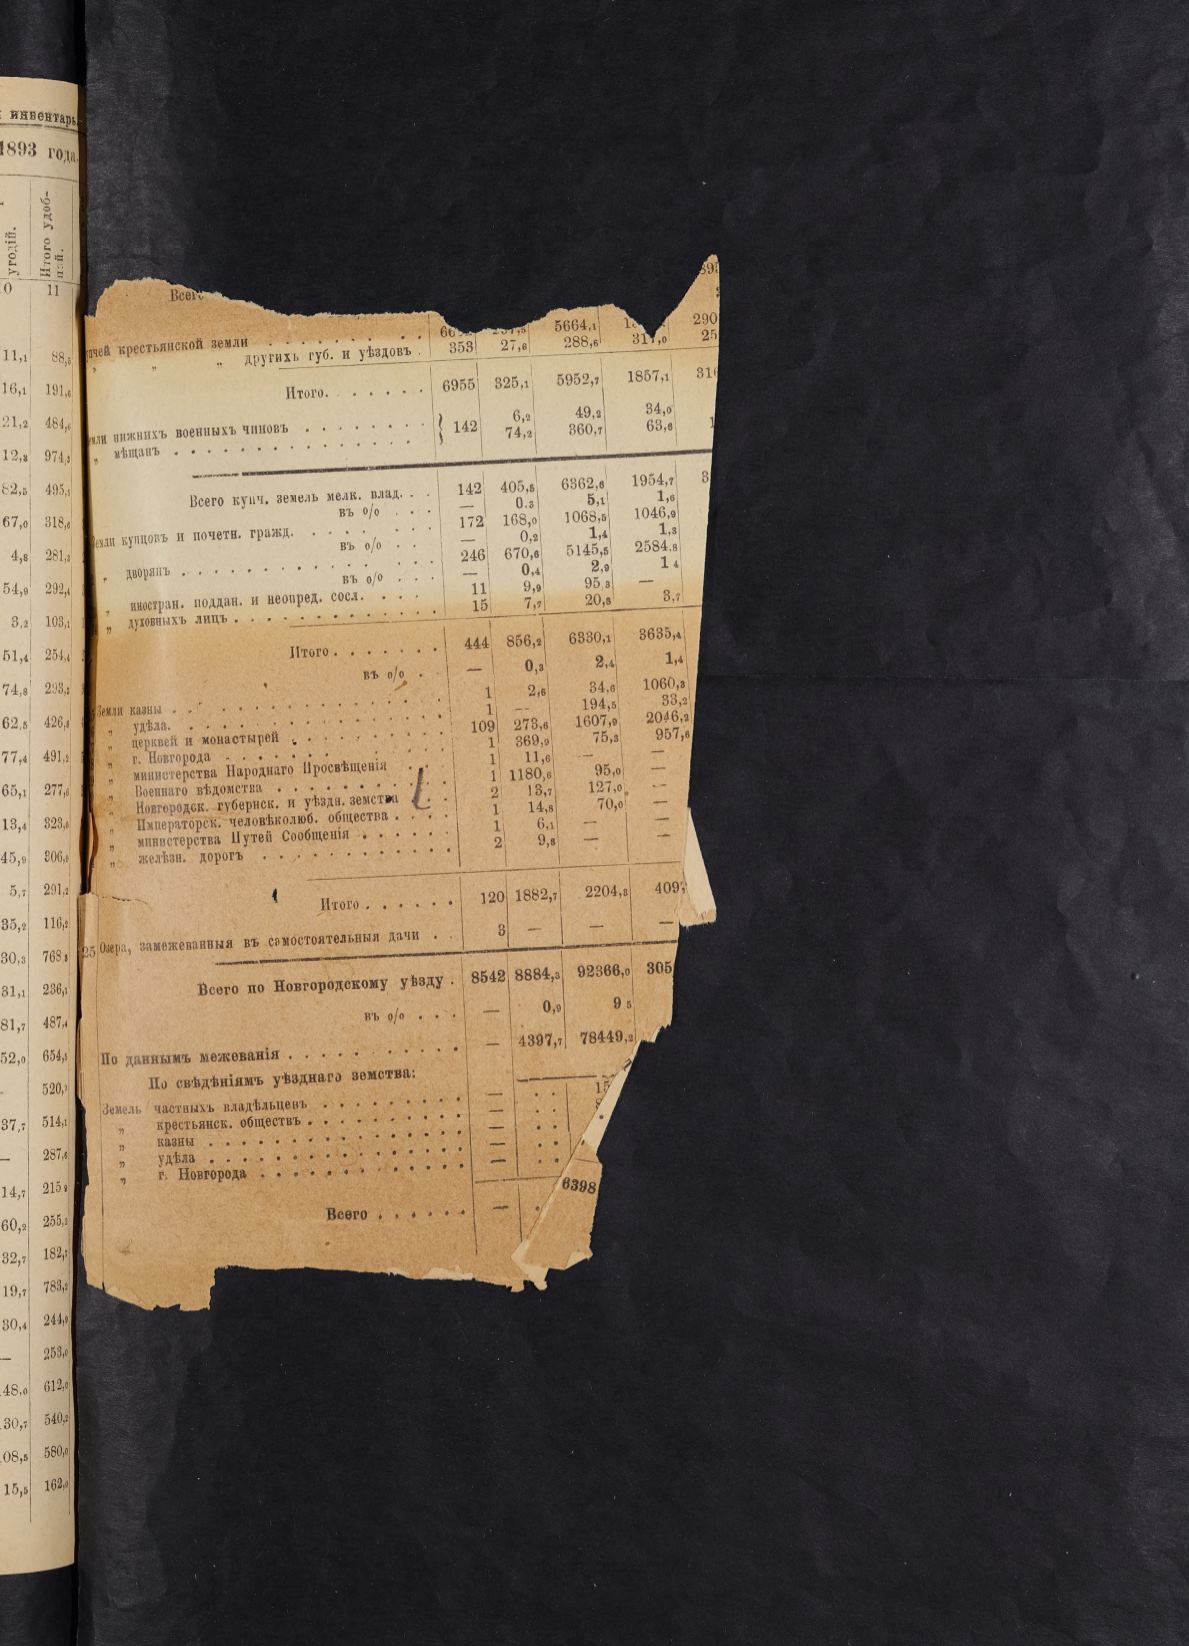 инвентарь.
1893 года.
угодій.
Итого удоб-
ній.
11
11,1 88,8
16,1 191,0
21,2 484,6
12,8 974,3
82,5 495,5
67,0 318,6
4,8 281,3
54,9 292,4
3,2 103,1
51,4 254,4
74,8 293,2
62,5 426,8
77,4 491,2
65,1 277,6
13,4 323,6
45,9 306,9
5,7 291,2
35,2 116,2
30,3 768,8
31,1 236,1
81,7 487,4
52,0 654,5
520,7
37,7 514,1
— 287,6
14,7 215,9
60,2 255,2
32,7 182,7
19,7 783,2
30,4 244,0
— 253,0
48,0 612,0
30,7 540,2
08,5 580,0
15,5 162,0
Всего
крестьянской земли . . . . . . . . 5664,1 290
„ „ „ другихъ губ. и уѣздовъ . 353 27,6 288,6 317,0 25
Итого. . . . . . . 6955 325,1 5952,7 1857,1 316
нижнихъ военныхъ чиновъ . . . . . . . . } 142 6,2 49,2 34,0
„ мѣщанъ . . . . . . . . . . . . . . 74,2 360,7 63,6 1
Всего купч. земель мелк. влад. . . 142 405,5 6362,6 1954,7 3
въ о/о . . . — 0.3 5,1 1,6
Земли купцовъ и почетн. гражд. . . . . . 172 168,0 1068,5 1046,9
въ о/о . . — 0,2 1,4 1,3
„ дворянъ . . . . . . . . . . . . . 246 670,6 5145,5 2584,8
въ о/о . . . — 0,4 2,9 1 4
„ иностран. поддан. и неопред. сосл. . . . 11 9,9 95 3 —
„ духовныхъ лицъ . . . . . . . . . . . 15 7,7 20,8 3,7
Итого . . . . . . . 444 856,2 6330,1 3635,4
въ о/о . . — 0,3 2,4 1,4
Земли казны . . . . . . . . . . . . . . 1 2,6 34,6 1060,3
„ удѣла. . . . . . . . . . . . . . . 1 — 194,5 33,2
„ церквей и монастырей . . . . . . . . 109 273,6 1607,9 2046,2
„ г. Новгорода . . . . . . . . . . . 1 369,9 75,3 957,6
„ министерства Народнаго Просвѣщенія . . 1 11,6 — —
„ Военнаго вѣдомства . . . . . . . . . 1 1180,6 95,0 —
„ Новгородск. губернск. и уѣздн. земства . 2 13,7 127,0 —
„ Императорск. человѣколюб. общества . . . . 1 14,8 70,0 —
„ министерства Путей Сообщенія . . . . . . 1 6,1 — —
„ желѣзн. дорогъ . . . . . . . . . . . 2 9,8 — —
Итого . . . . . . 120 1882,7 2204,3 409
25 Озера, замежеванныя въ самостоятельныя дачи . . 3 — — —
Всего по Новгородскому уѣзду . 8542 8884,3 92366,0 305
въ о/о . . . — 0,9 9 5
По даннымъ межеванія . . . . . . . . . . — 4397,7 78449,2
По свѣдѣніямъ уѣзднаго земства:
Земель частныхъ владѣльцевъ . . . . . . . . . — . . 15
„ крестьянск. обществъ . . . . . . . . . . — . .
„ казны . . . . . . . . . . . . . . . — . .
„ удѣла . . . . . . . . . . . . . . . — . .
„ г. Новгорода . . . . . . . . . . . . — . .
Всего . . . . . . — . 6398